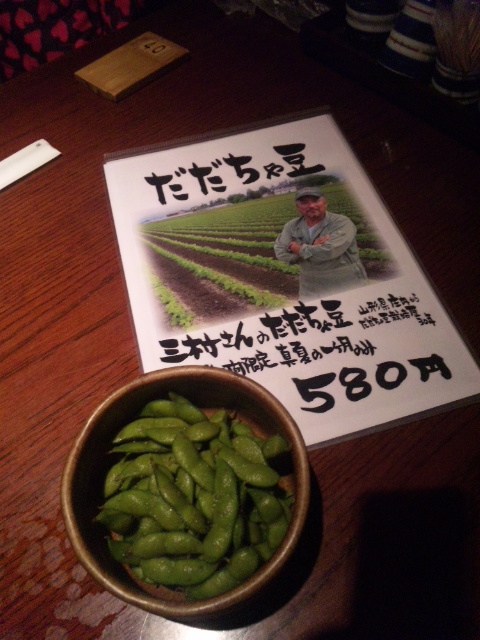 40
だだちゃ豆
三村さんのだだちゃ豆
山形県庄内から
期間限定 真夏の一ヶ月のみ
580円